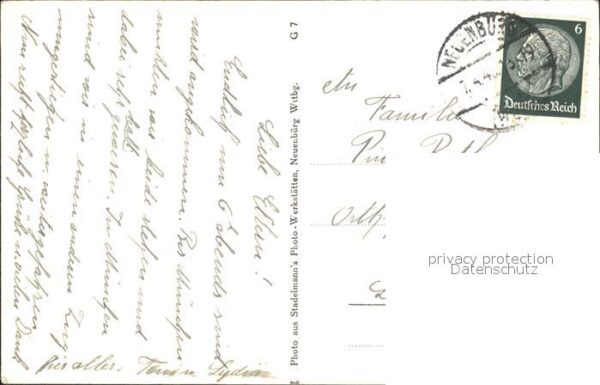 Liebe Eltern!
Endlich um 6 abends sind
wird angekommen. Bis München
mußten wir beide stehen und
dabei
kalt gewesen. In München
sind wir in einen anderen Zug
umgestiegen u. weitergefahren
Nun recht herzliche Grüße u. vielen Dank
für alles. Toni u. Lydia
G 7
Photo aus Stadelmann's Photo-Werkstätten, Neuenbürg Wttbg.
NEUENBÜRG
6
Deutsches Reich
An
Familie
privacy protection
Datenschutz